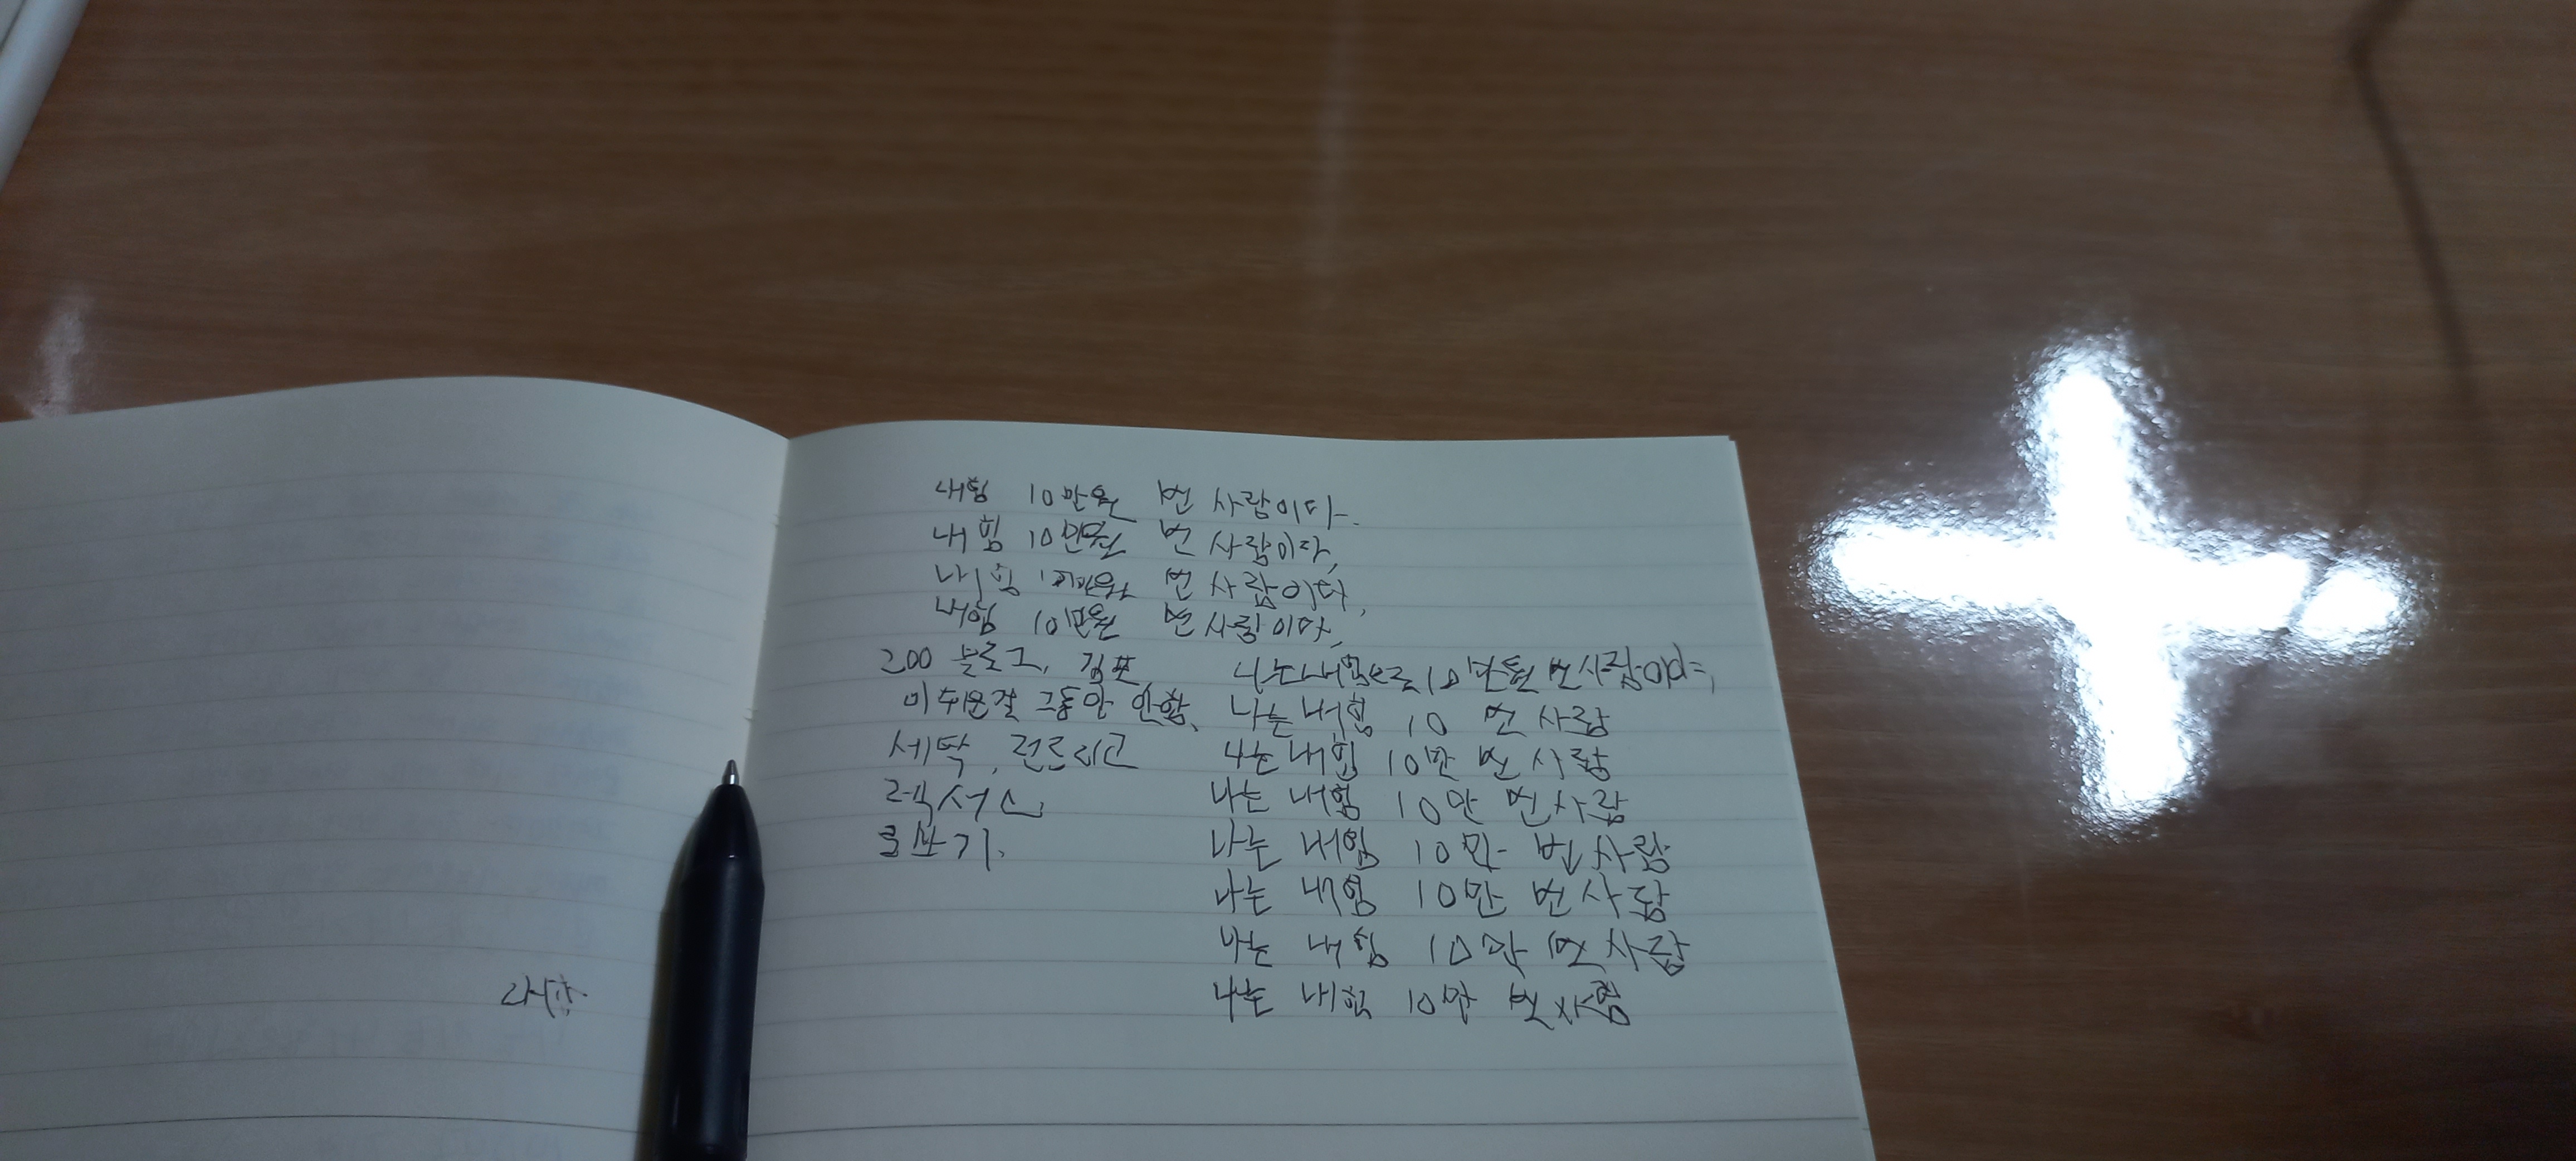 내힘 10만원 번 사람이다.
내힘 10만원 번 사람이다,
내힘 10만원 번 사람이다,
내힘 10만원 번 사람이다,
200 블로그, 김포
이 쉬운걸 그동안 안함,
세탁, 런드리고
렉서스,
로 쓰기.
나는 내힘으로 10만원 번 사람이다,
나는 내힘 10 번 사람
나는 내힘 10만 번 사람
나는 내힘 10만 번 사람
나는 내힘 10만 번 사람
나는 내힘 10만 번 사람
나는 내힘 10만 번 사람
나는 내힘 10만 번 사람